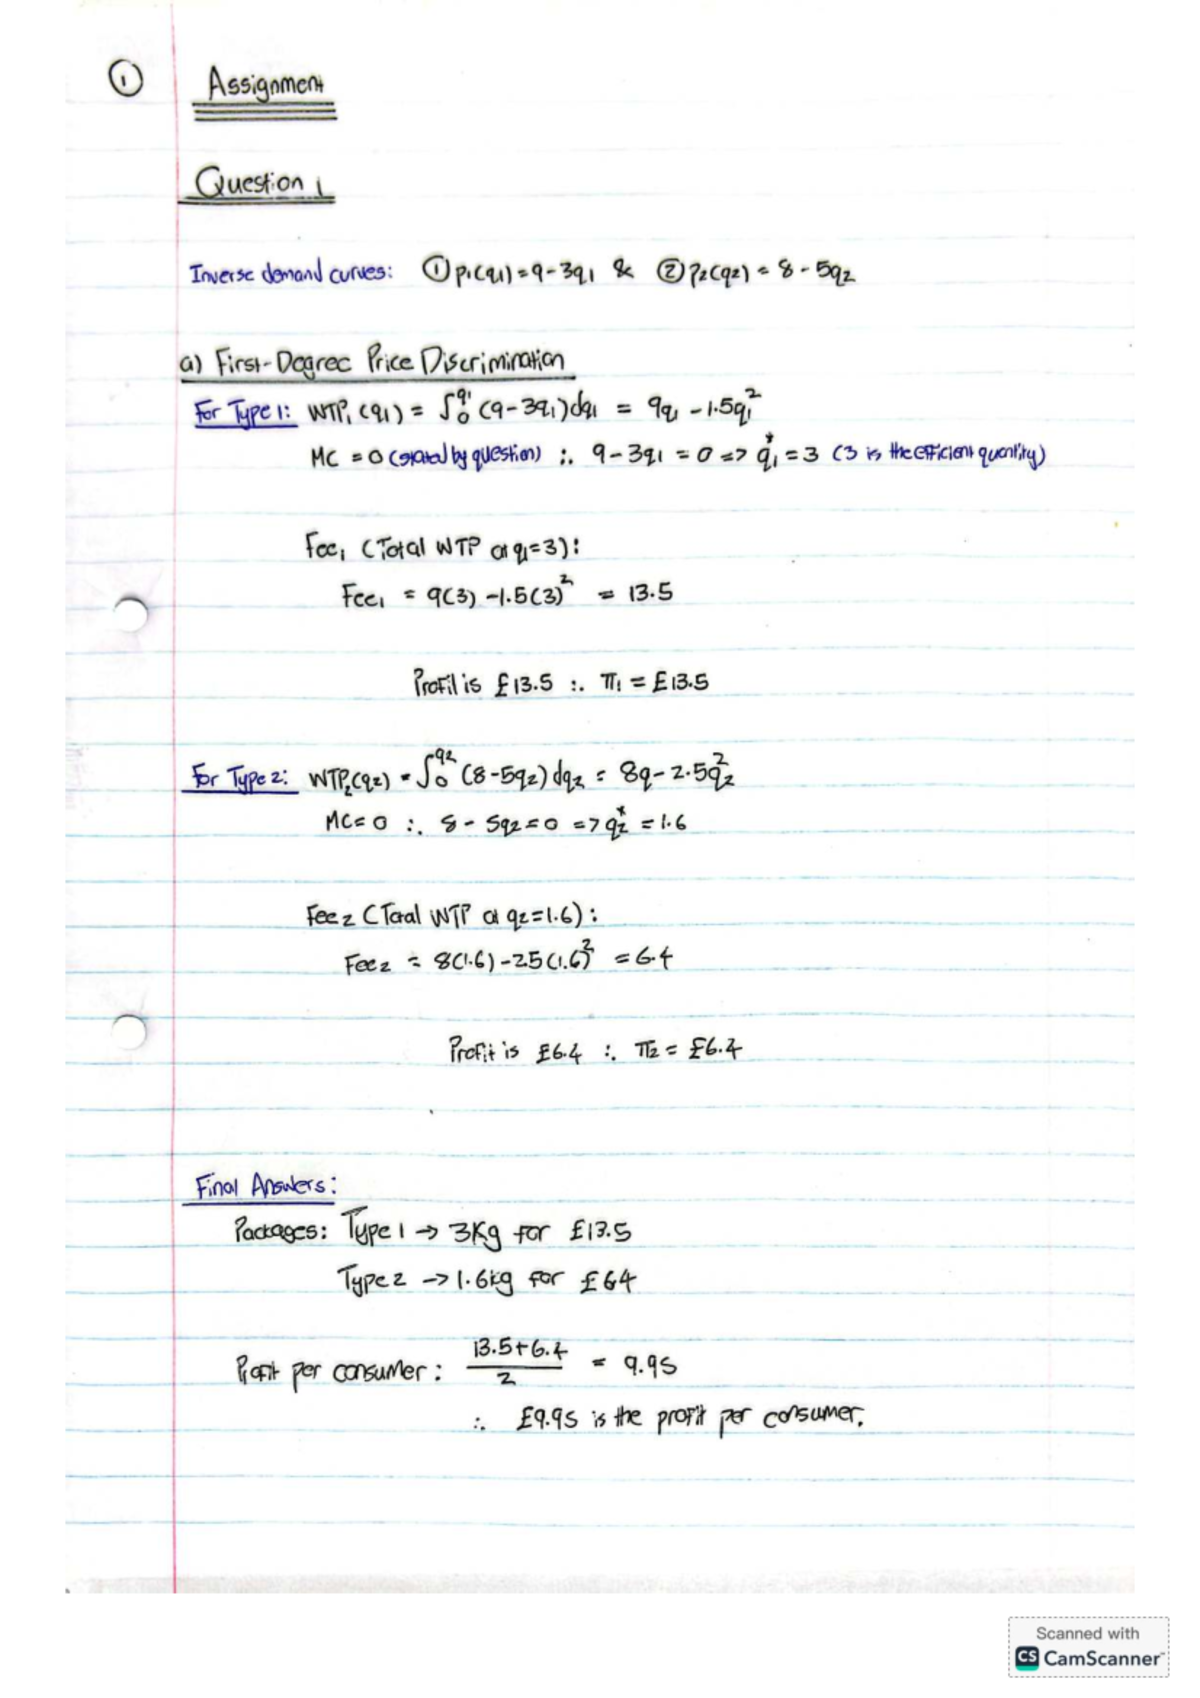 ① Assignment
Question 1
Inverse demand curves: ① p₁(q₁) = 9 - 3q₁ & ② p₂(q₂) = 8 - 5q₂
a) First-Degree Price Discrimination
For Type 1: WTP₁(q₁) = ∫₀^q₁ (9-3q₁)dq₁ = 9q₁ - 1.5q₁²
MC = 0 (stated by question) ∴ 9 - 3q₁ = 0 => q₁* = 3 (3 is the efficient quantity)
Fee₁ (Total WTP at q₁=3):
Fee₁ = 9(3) - 1.5(3)² = 13.5
Profit is £13.5 ∴ π₁ = £13.5
For Type 2: WTP₂(q₂) = ∫₀^q₂ (8-5q₂)dq₂ = 8q - 2.5q₂²
MC = 0 ∴ 8 - 5q₂ = 0 => q₂* = 1.6
Fee₂ (Total WTP at q₂=1.6):
Fee₂ = 8(1.6) - 2.5(1.6)² = 6.4
Profit is £6.4 ∴ π₂ = £6.4
Final Answers:
Packages: Type 1 → 3Kg for £13.5
Type 2 → 1.6kg for £64
Profit per consumer: (13.5+6.4)/2 = 9.95
∴ £9.95 is the profit per consumer.
Scanned with
CS CamScanner